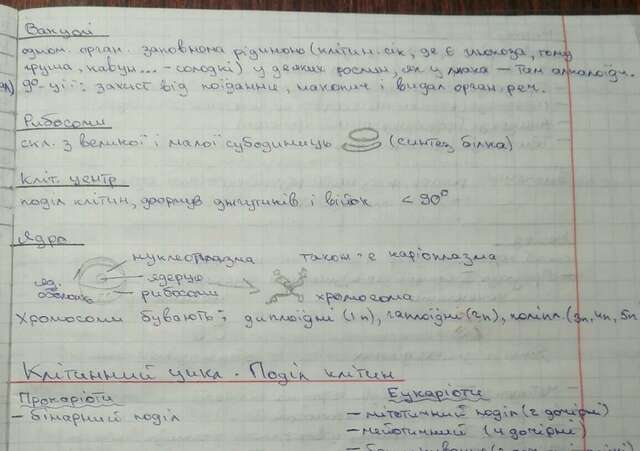 Вакуолі
одном. орган. заповнена рідиною (клітин. сік, де є глюкоза, тому
груша, кавун... - солодкі) у деяких рослин, як у мака - там алкалоїди.
ф-ції: захист від поїдання, накопич і видал орган. реч.
Рибосоми
скл. з великої і малої субодиниць (синтез білка)
Кліт. центр
поділ клітин, формув джгутиків і війок < 90°
Ядро
нуклеоплазма також є каріоплазма
ядерце
яд. оболонка
рибосоми хромосома
Хромосоми бувають: диплоїдні (1n), гаплоїдні (2n), поліпл. (3n, 4n, 5n
Клітинний цикл. Поділ клітин
Прокаріоти Еукаріоти
- бінарний поділ - мітотичний поділ (2 дочірні)
- мейотичний (4 дочірні)